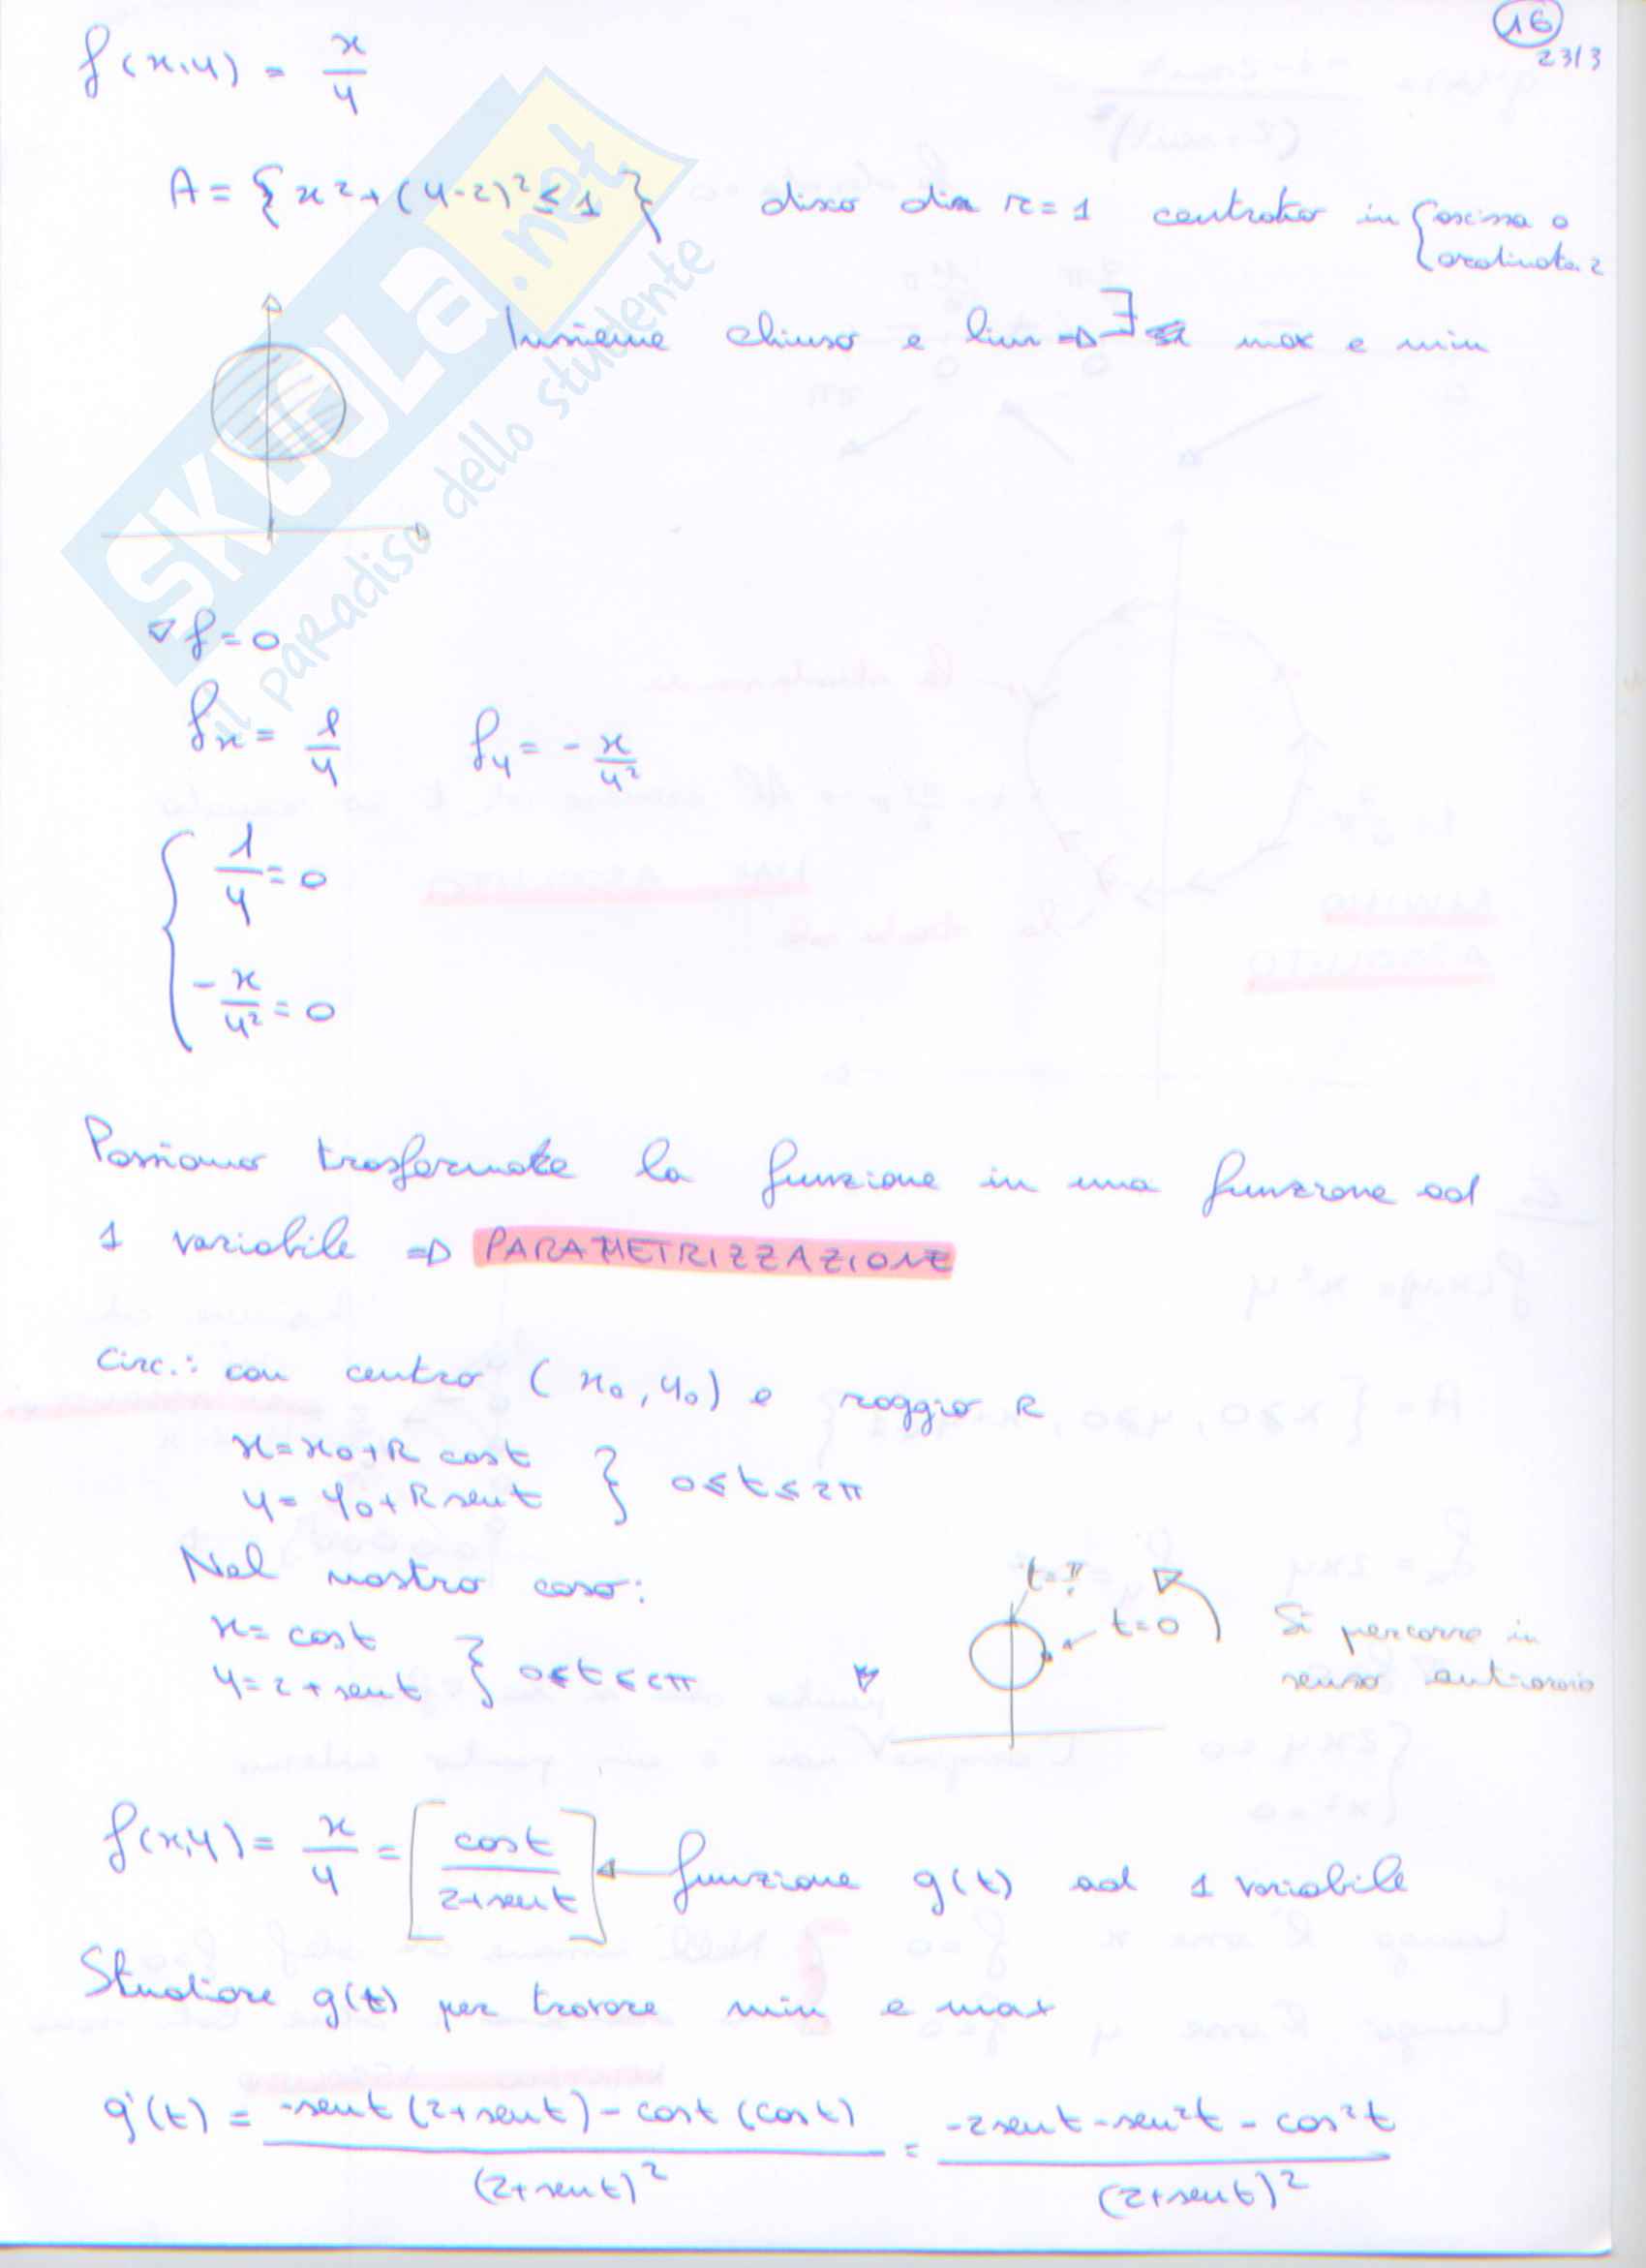 16
23/3
f(x,y) = x/y
A = { x² + (y-2)² ≤ 1 } disco di r=1 centrato in { ascissa 0
ordinata 2
Insieme chiuso e lim ⇒ ∃ max e min
SKUOLA.net
il paradiso dello studente
∇f = 0
fx = 1/y fy = - x/y²
{ 1/y = 0
- x/y² = 0
Possiamo trasformare la funzione in una funzione ad
1 variabile ⇒ PARAMETRIZZAZIONE
Circ.: con centro (x0, y0) e raggio R
x = x0 + R cost
y = y0 + R sent } 0 ≤ t ≤ 2π
Nel nostro caso:
x = cost
y = 2 + sent } 0 ≤ t ≤ 2π
t = π/2
t = 0
Si percorre in
senso antiorario
f(x,y) = x/y = [ cost / 2+sent ] ← funzione g(t) ad 1 variabile
Studiare g(t) per trovare min e max
g'(t) = -sent (2+sent) - cost (cost) / (2+sent)² = -2sent - sen²t - cos²t / (2+sent)²